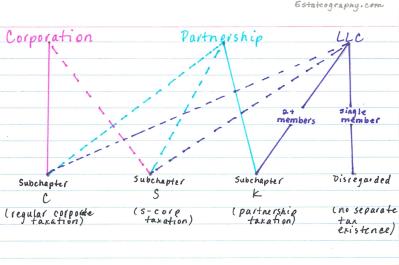 Estateography.com
Corporation Partnership LLC
2+ members
single member
Subchapter C
(regular corporate taxation)
Subchapter S
(s-corp taxation)
Subchapter K
(partnership taxation)
Disregarded
(no separate tax existence)